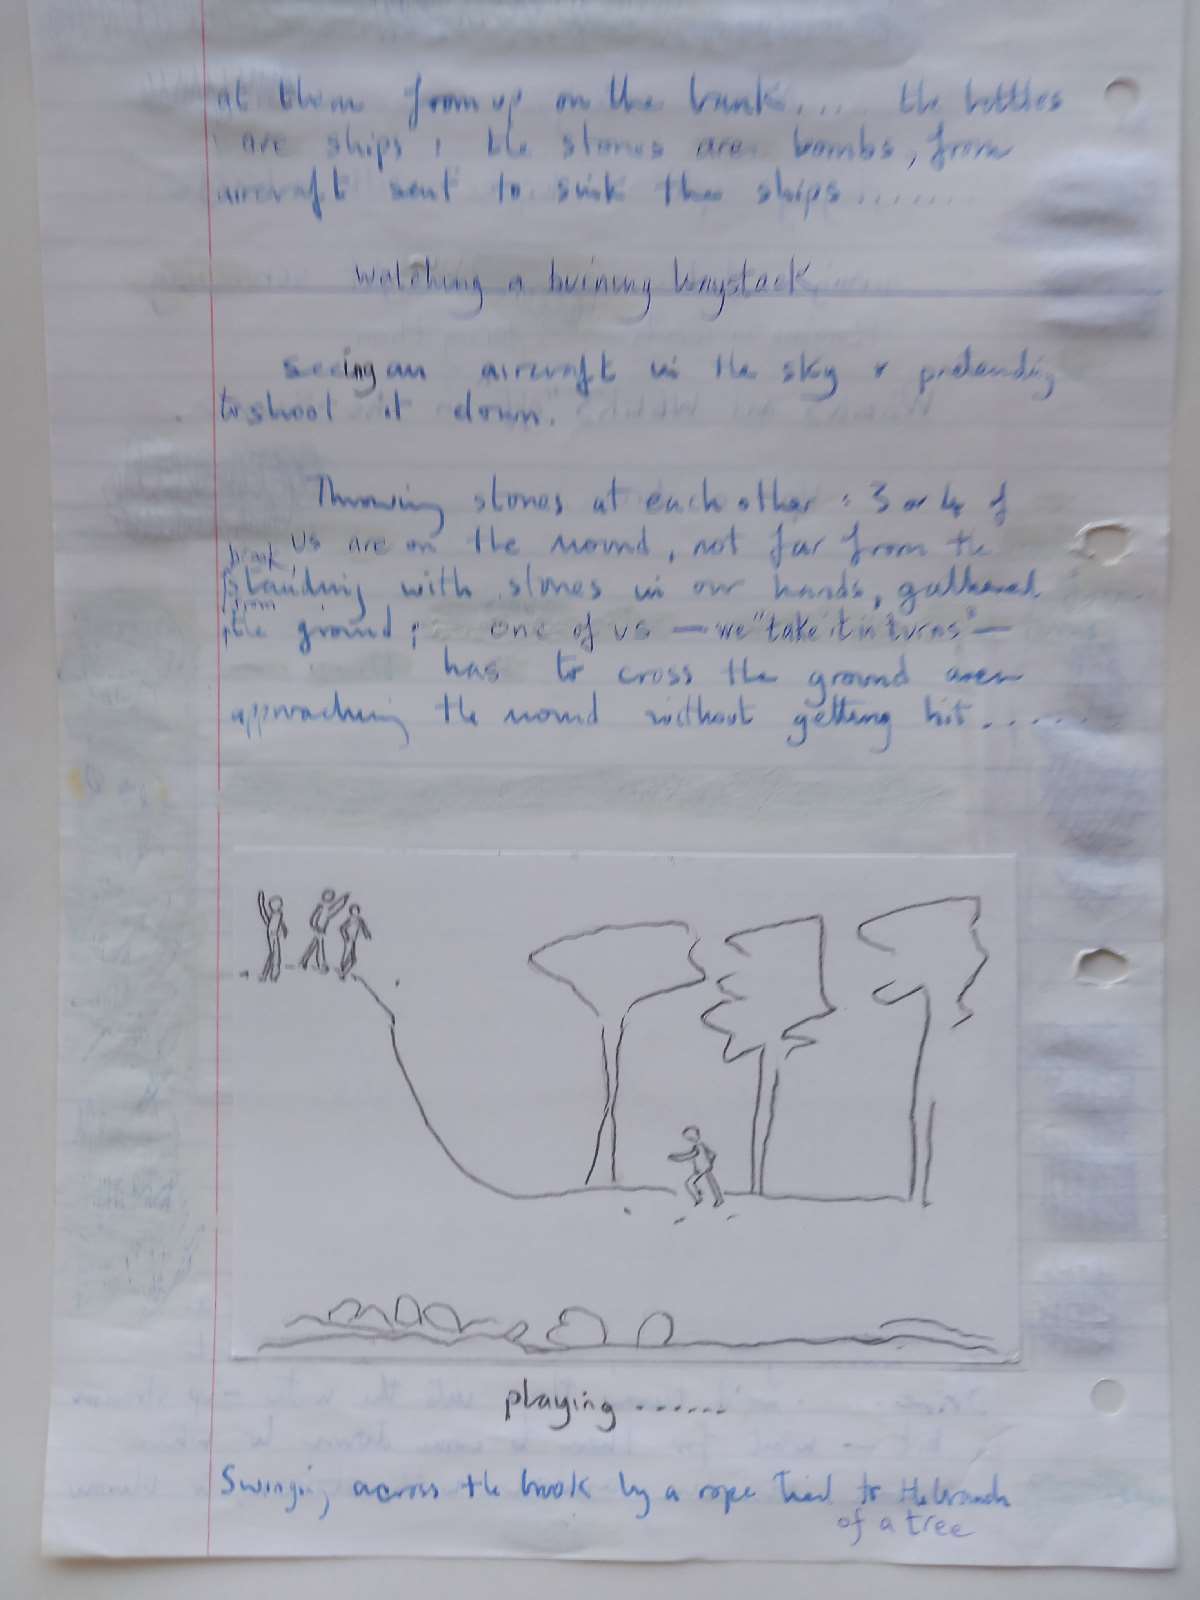 at them from up on the bank.... the bottles
are ships ; the stones are bombs, from
aircraft sent to sink the ships.......
watching a burning haystack
seeing an aircraft in the sky & pretending
to shoot it down.
Throwing stones at each other : 3 or 4 of
us are on the mound, not far from the
brook,
standing with stones in our hands, gathered
from
the ground; one of us — we "take it in turns" —
has to cross the ground area
approaching the mound without getting hit......
playing ......
Swinging across the brook by a rope tied to the branch
of a tree